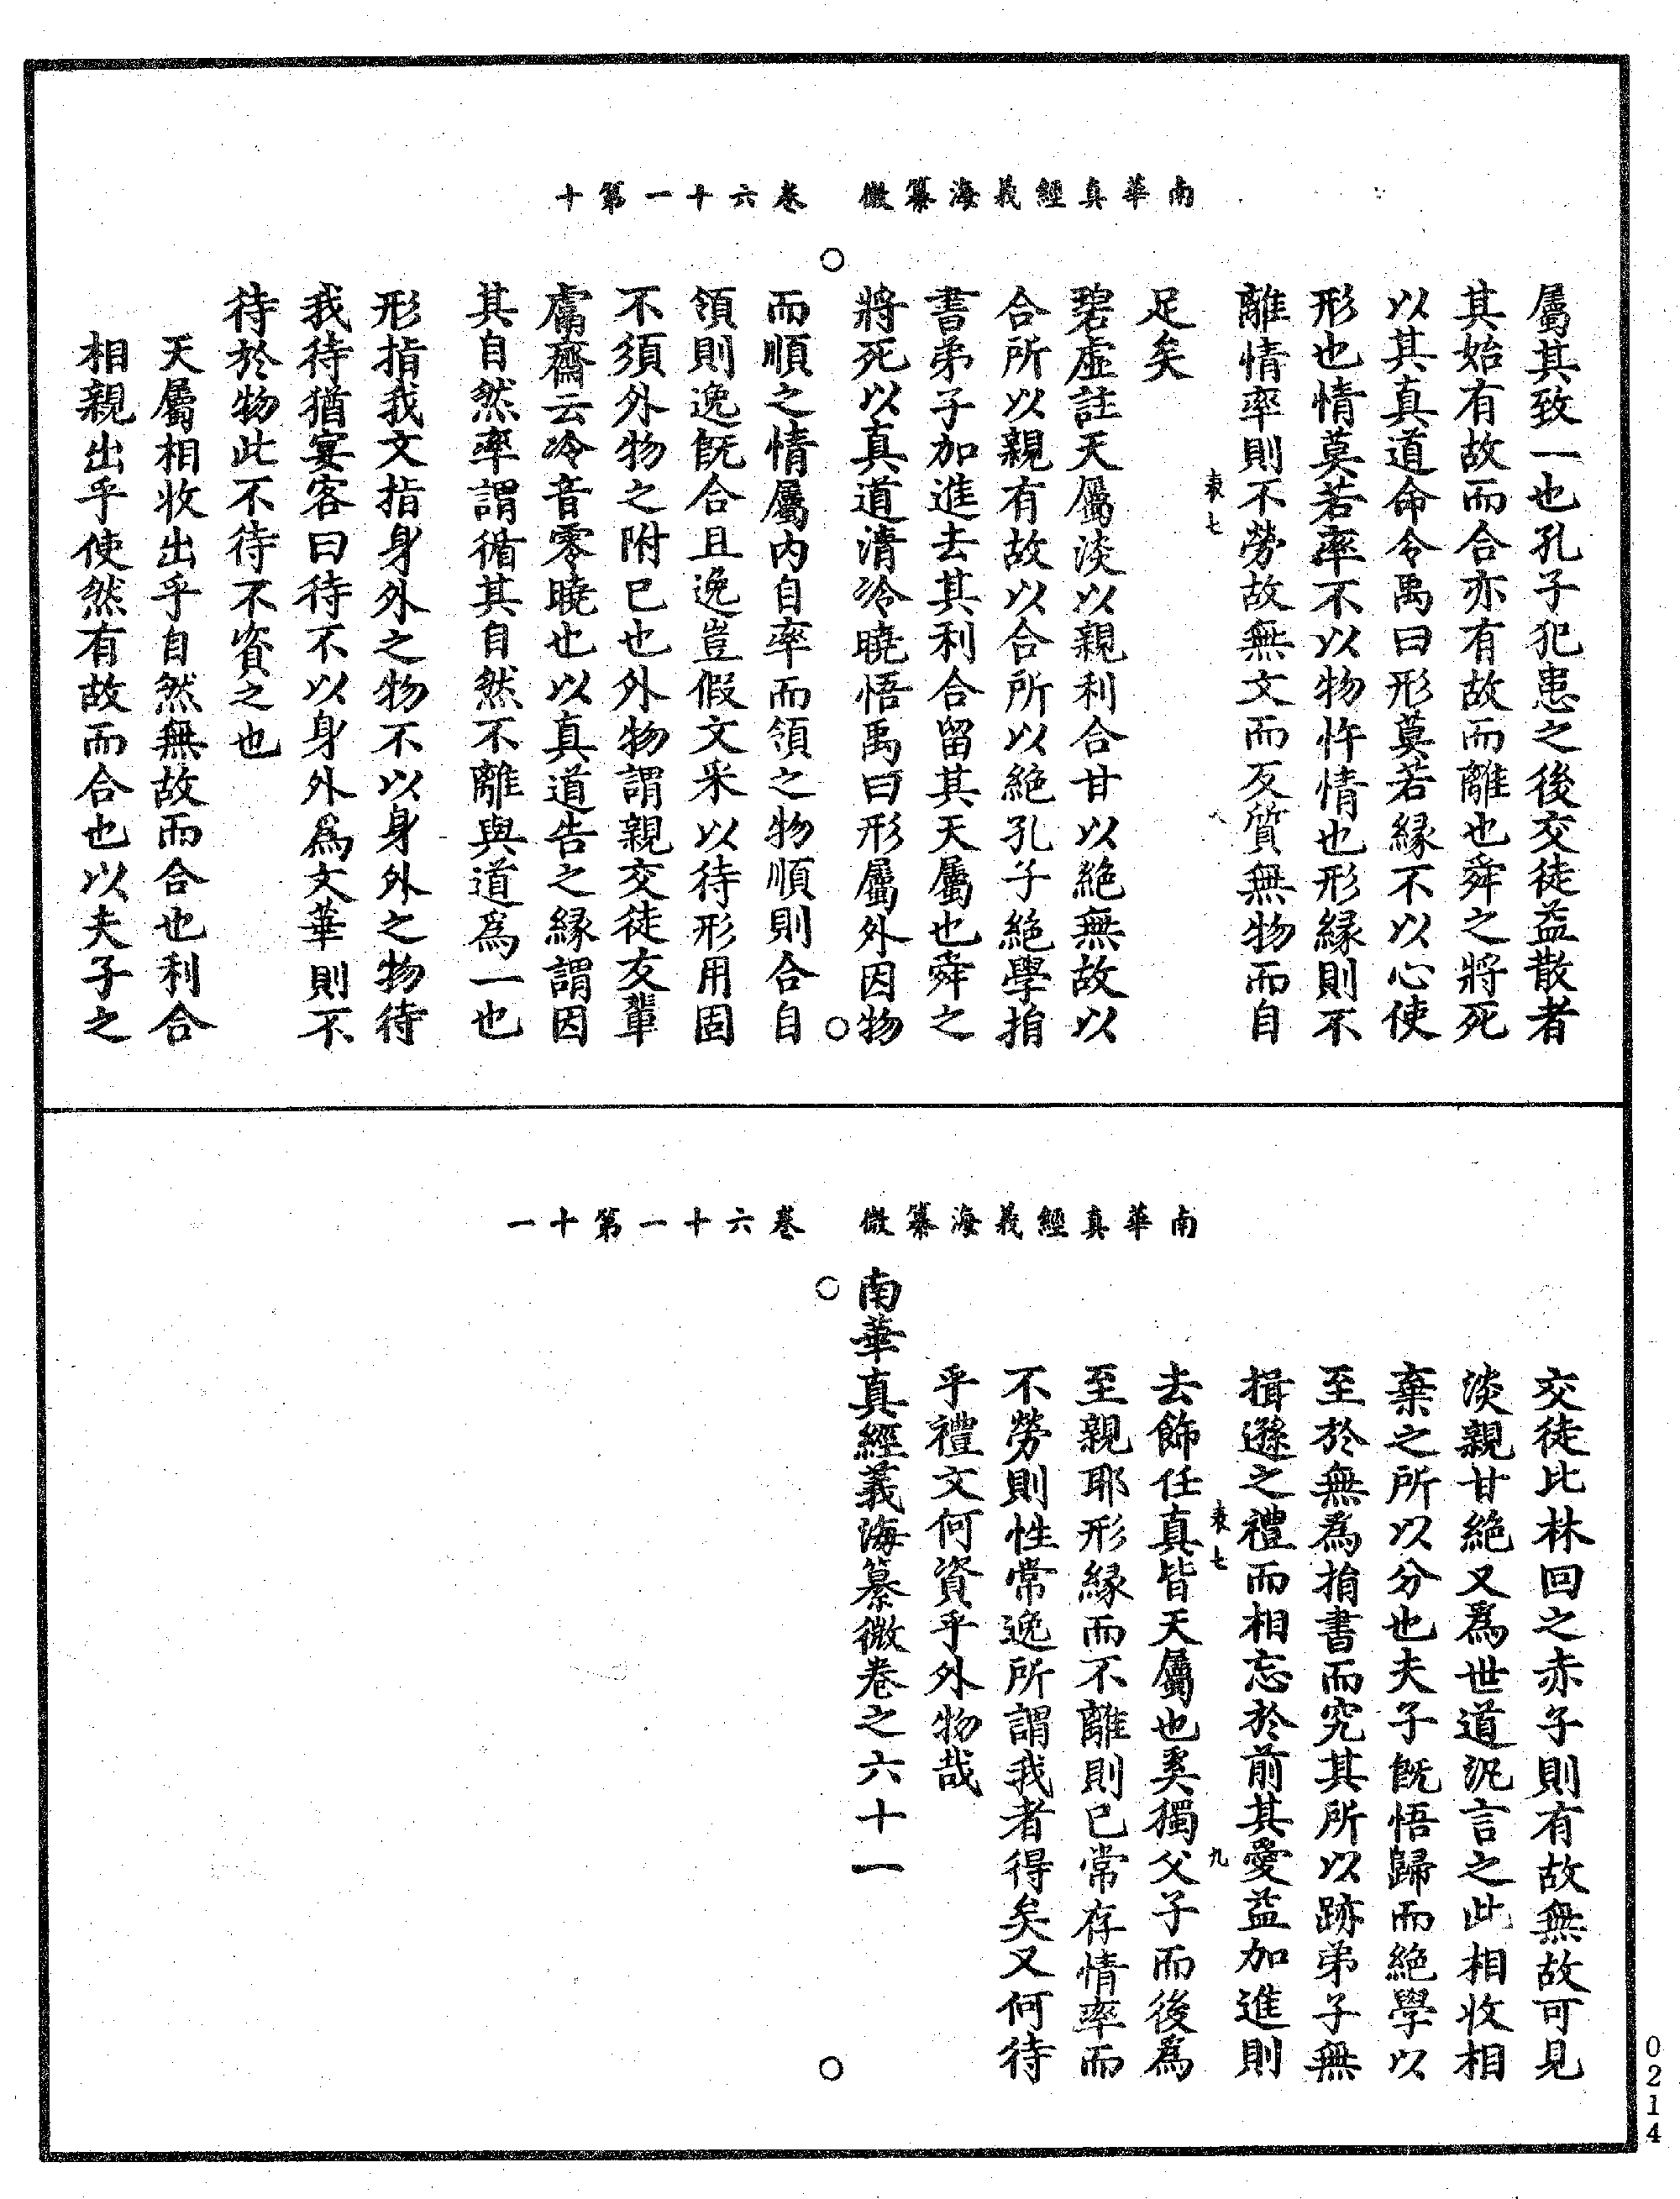 南華真經義海纂微　卷六十一第十
屬其致一也孔子犯患之後交徒益散者
其始有故而合亦有故而離也舜之將死
以其真道命令禹曰形莫若緣不以心使
形也情莫若率不以物忤情也形緣則不
離情率則不勞故無文而反質無物而自
足矣
碧虛註天屬淡以親利合甘以絕無故以
合所以親有故以合所以絕孔子絕學捐
書弟子加進去其利合留其天屬也舜之
將死以真道清泠曉悟禹曰形屬外因物
而順之情屬內自率而領之物順則合自
領則逸既合且逸豈假文采以待形用固
不須外物之附已也外物謂親交徒友輩
鬳齋云泠音零曉也以真道告之緣謂因
其自然率謂循其自然不離與道為一也
形指我文指身外之物不以身外之物待
我待猶宴客曰待不以身外為文華則不
待於物此不待不資之也
天屬相收出乎自然無故而合也利合
相親出乎使然有故而合也以夫子之
袁七
南華真經義海纂微　卷六十一第十一
交徒比林回之赤子則有故無故可見
淡親甘絕又為世道汎言之此相收相
棄之所以分也夫子既悟歸而絕學以
至於無為捐書而究其所以跡弟子無
揖遜之禮而相忘於前其愛益加進則
袁七　九
去飾任真皆天屬也奚獨父子而後為
至親耶形緣而不離則已常存情率而
不勞則性常逸所謂我者得矣又何待
乎禮文何資乎外物哉
南華真經義海纂微卷之六十一
0214